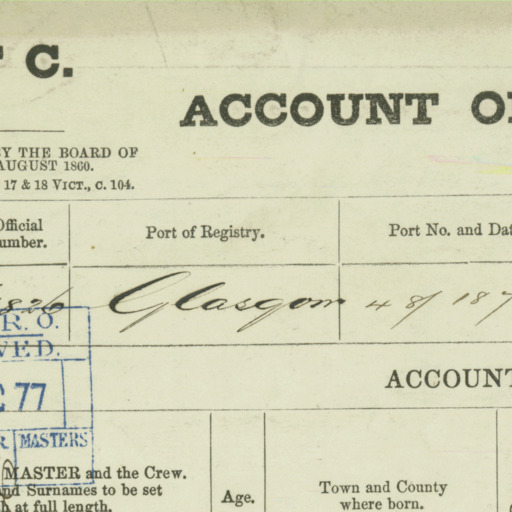 C.
ACCOUNT
BY THE BOARD OF
AUGUST 1860.
17 & 18 VICT., C. 104.
Official Number. Port of Registry. Port No. and
826 Glasgow 48/187
R. O.
VED.
77
ACCOUNT
MASTERS
MASTER and the Crew.
and Surnames to be set
at full length.
Age.
Town and County
where born.